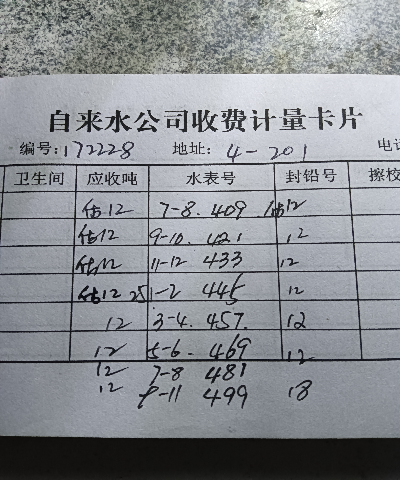 自来水公司收费计量卡片
编号:172228 地址: 4-201 电
卫生间 应收吨 水表号 封铅号 擦校
估12 7-8. 409 估12
估12 9-10. 421 12
估12 11-12 433 12
估12 25 1-2 445 12
12 3-4. 457. 12
12 5-6. 469 12
12 7-8 481
12 9-11 499 18